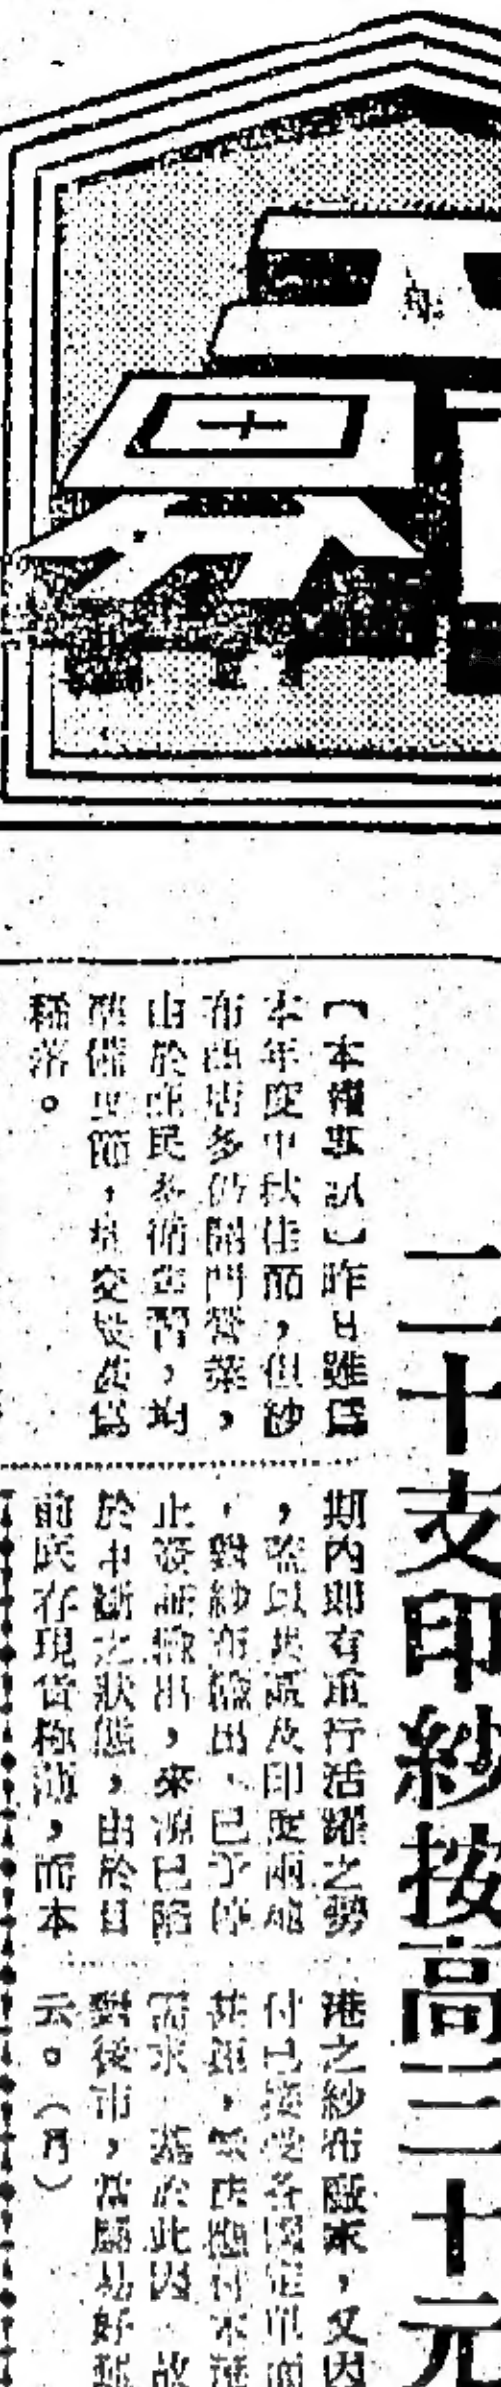 二十支印紗按高三十元
【本報專訊】昨日雖爲
本年度中秋佳節，但紗
布商店多仍開門營業，
由於市民多循舊習，均
準備度節，故交發甚爲
稀落。
期內即有重行活躍之勢
，蓋以英國及印度兩地
，對紗布輸出，已予停
止簽証輸出，來源已陷
於中斷之狀態，由於目
前底存現貨極薄，而本
港之紗布廠家，又因
付已接受各國定單而
其額，無法應付本港
需求，基於此因，故
對後市，當屬易好
云。（丹）